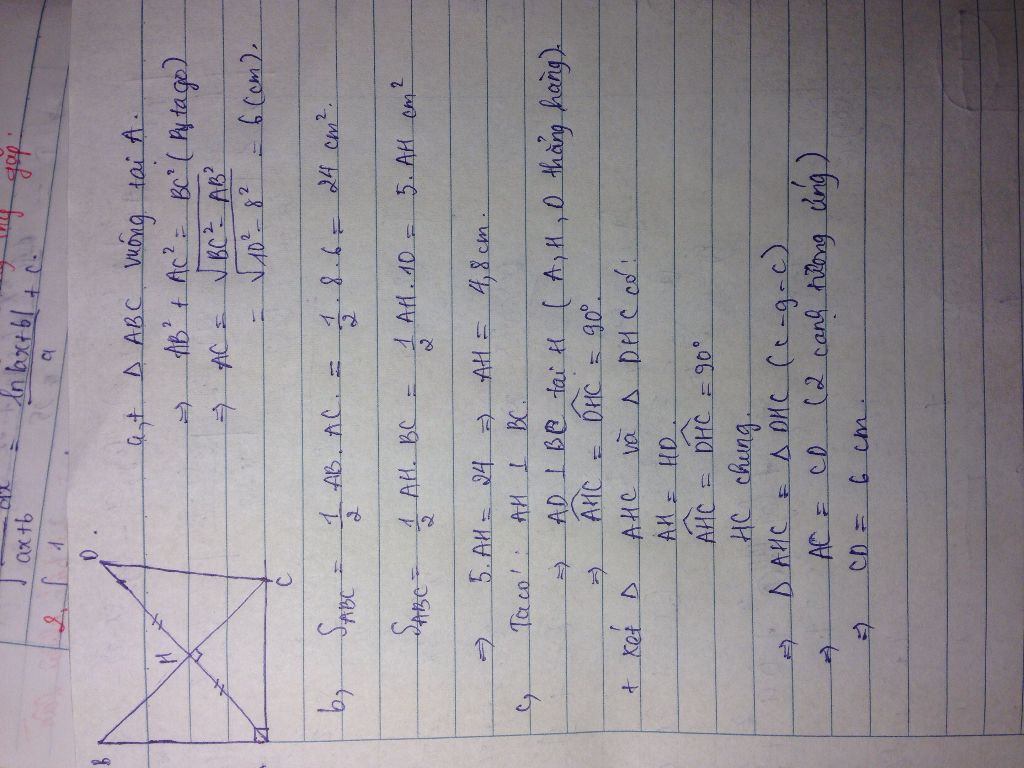 ∫ dx / ax+b = ln|ax+b| / a + c.
B
H
D
C
a, + Δ ABC vuông tại A.
⇒ AB² + AC² = BC² (Pytago)
⇒ AC = √BC² - AB²
= √10² - 8² = 6(cm).
b, S_ABC = 1/2 AB. AC. = 1/2 . 8 . 6 = 24 cm².
S_ABC = 1/2 AH. BC = 1/2 AH. 10 = 5. AH cm²
⇒ 5. AH = 24 ⇒ AH = 4,8 cm.
c, Ta có: AH ⊥ BC.
⇒ AD ⊥ BC tại H ( A, H, D thẳng hàng).
⇒ AHC = DHC = 90°.
+ Xét Δ AHC và Δ DHC có:
AH = HD.
AHC = DHC = 90°
HC chung.
⇒ Δ AHC = Δ DHC (c-g-c)
⇒ AC = CD (2 cạnh tương ứng)
⇒ CD = 6 cm.